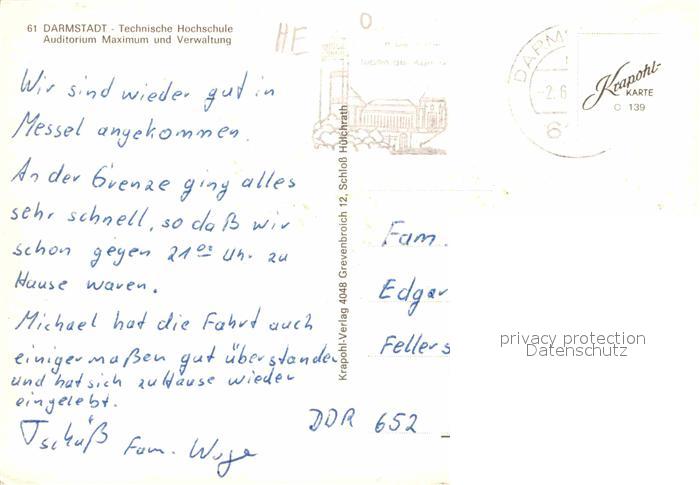 61 DARMSTADT - Technische Hochschule
Auditorium Maximum und Verwaltung
HE
O
DARM
-2.6
61
Krapohl-
KARTE
C 139
Wir sind wieder gut in
Messel angekommen.
An der Grenze ging alles
sehr schnell, so daß wir
schon gegen 21 00 Uhr zu
Hause waren.
Michael hat die Fahrt auch
einigermaßen gut überstanden
und hat sich zu Hause wieder
eingelebt.
Tschüß Fam.
Krapohl-Verlag 4048 Grevenbroich 12, Schloß Hülchrath
Fam.
Edgar
Fellers
DDR 652
privacy protection
Datenschutz